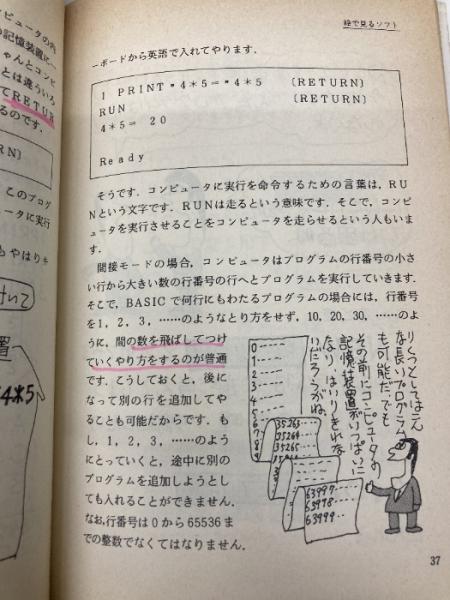 絵で見るソフト
ーボードから英語で入れてやります.
1 PRINT "4*5="4*5 〔RETURN〕
RUN 〔RETURN〕
4*5= 20
Ready
そうです. コンピュータに実行を命令するための言葉は, RU
Nという文字です. RUNは走るという意味です. そこで, コンピ
ュータを実行させることをコンピュータを走らせるという人もいま
す.
間接モードの場合, コンピュータはプログラムの行番号の小さ
い行から大きい数の行番号の行へとプログラムを実行していきます.
そこで, BASICで何行にもわたるプログラムの場合には, 行番号
を1, 2, 3, ……のようなとり方をせず, 10, 20, 30, ……のよ
うに, 間の数を飛ばしてつけ
ていくやり方をするのが普通
です. こうしておくと, 後に
なって別の行を追加してや
ることも可能だからです. も
し, 1, 2, 3, ……のよう
にとっていくと, 途中に別の
プログラムを追加しようとし
ても入れることができません.
なお, 行番号は0から65536ま
での整数でなくてはなりません.
りくつとしてはこん
な長いプログラム
も可能だ. でも
その前にコンピュータの
記憶装置がいっぱいに
なり, はいりきれな
いだろうがね.
0----
1----
2----
3----
4----
5--
6-
7-
8-
9
35263--
35264--
35265
63997--
63998--
63999--
37
ンピュータの内
の記憶装置に一
ゃんとコンピ
とは違いろ
てRETUR
るのです.
RN〕
このプログ
ータに実行
もやはりキ
けいて
置
4*5